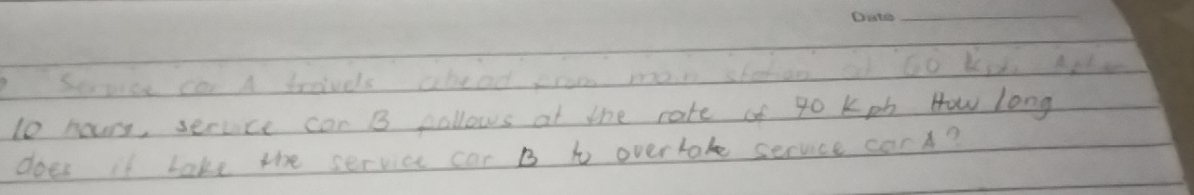 Date
Service car A travels ahead from main station at 60 kph. After
10 hours, service car B follows at the rate of 90 kph How long
does it take the service car B to overtake service car A?